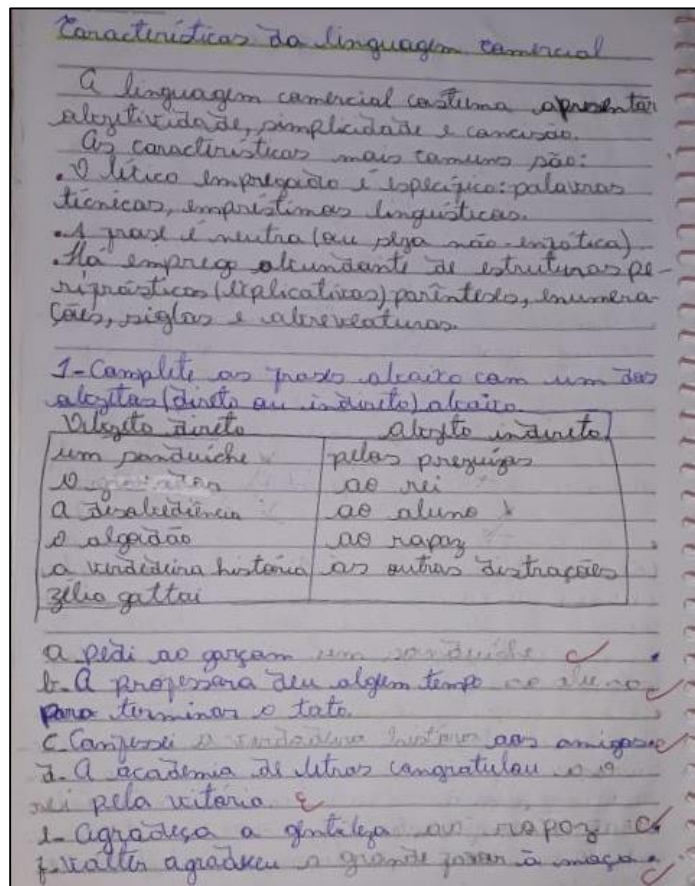 Características da linguagem comercial
A linguagem comercial costuma apresentar
objetividade, simplicidade e concisão.
As características mais comuns são:
. O lético empregado é específico: palavras
técnicas, empréstimos linguísticos.
. A frase é neutra (ou seja não-enfótica)
. Há emprego abundante de estruturas pe-
rifrásticas (explicativas) parênteses, enumera-
ções, siglas e abreveaturas.
1- Complete as frases abaixo com um dos
objetos (direto ou indireto) abaixo.
Objeto direto objeto indireto
um sanduíche pelos prejuízos
o ao rei
a desobediência ao aluno
o algodão ao rapaz
a verdadeira história as outras distrações
zélia gattai
a pedi ao garçom um sanduíche
b- A professora deu algum tempo ao aluno
para terminar o tato.
C. Confessei a verdadeira história aos amigos
d- A academia de letras congratulou o
rei pela vitória
e- agradeça a gentileza ao rapaz
f- valter agradeceu o grande favor à moça